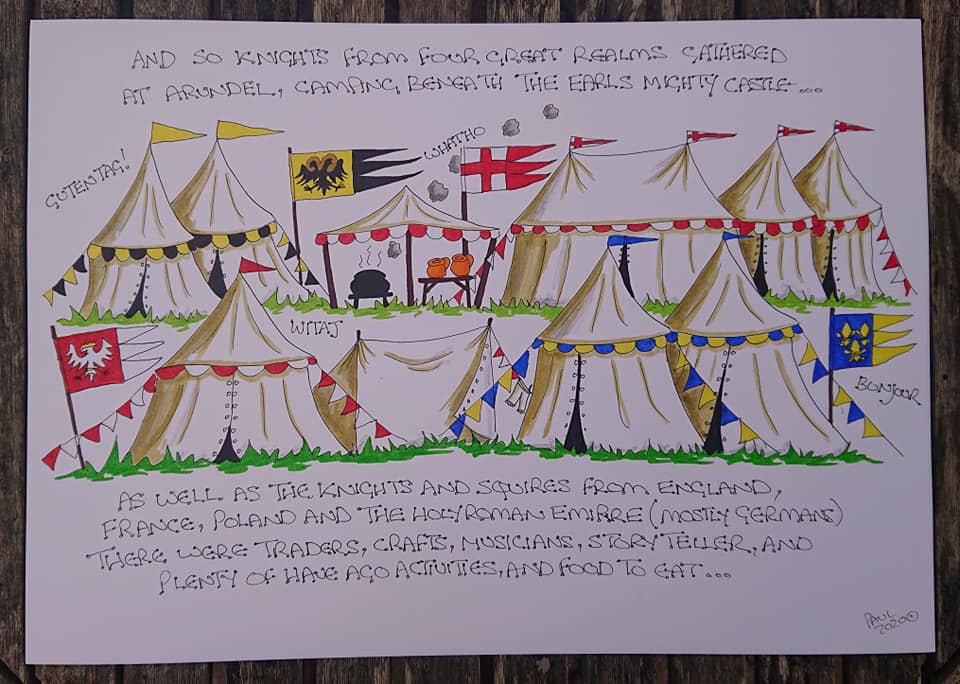 AND SO KNIGHTS FROM FOUR GREAT REALMS GATHERED
AT ARUNDEL, CAMPING BENEATH THE EARLS MIGHTY CASTLE...
GUTENTAG!
WHATHO
WITAJ
BONJOUR
AS WELL AS THE KNIGHTS AND SQUIRES FROM ENGLAND,
FRANCE, POLAND AND THE HOLY ROMAN EMIRRE (MOSTLY GERMANS)
THERE WERE TRADERS, CRAFTS, MUSICIANS, STORY TELLER, AND
PLENTY OF HAVE AGO ACTIVITIES, AND FOOD TO EAT...
PAUL
2020©